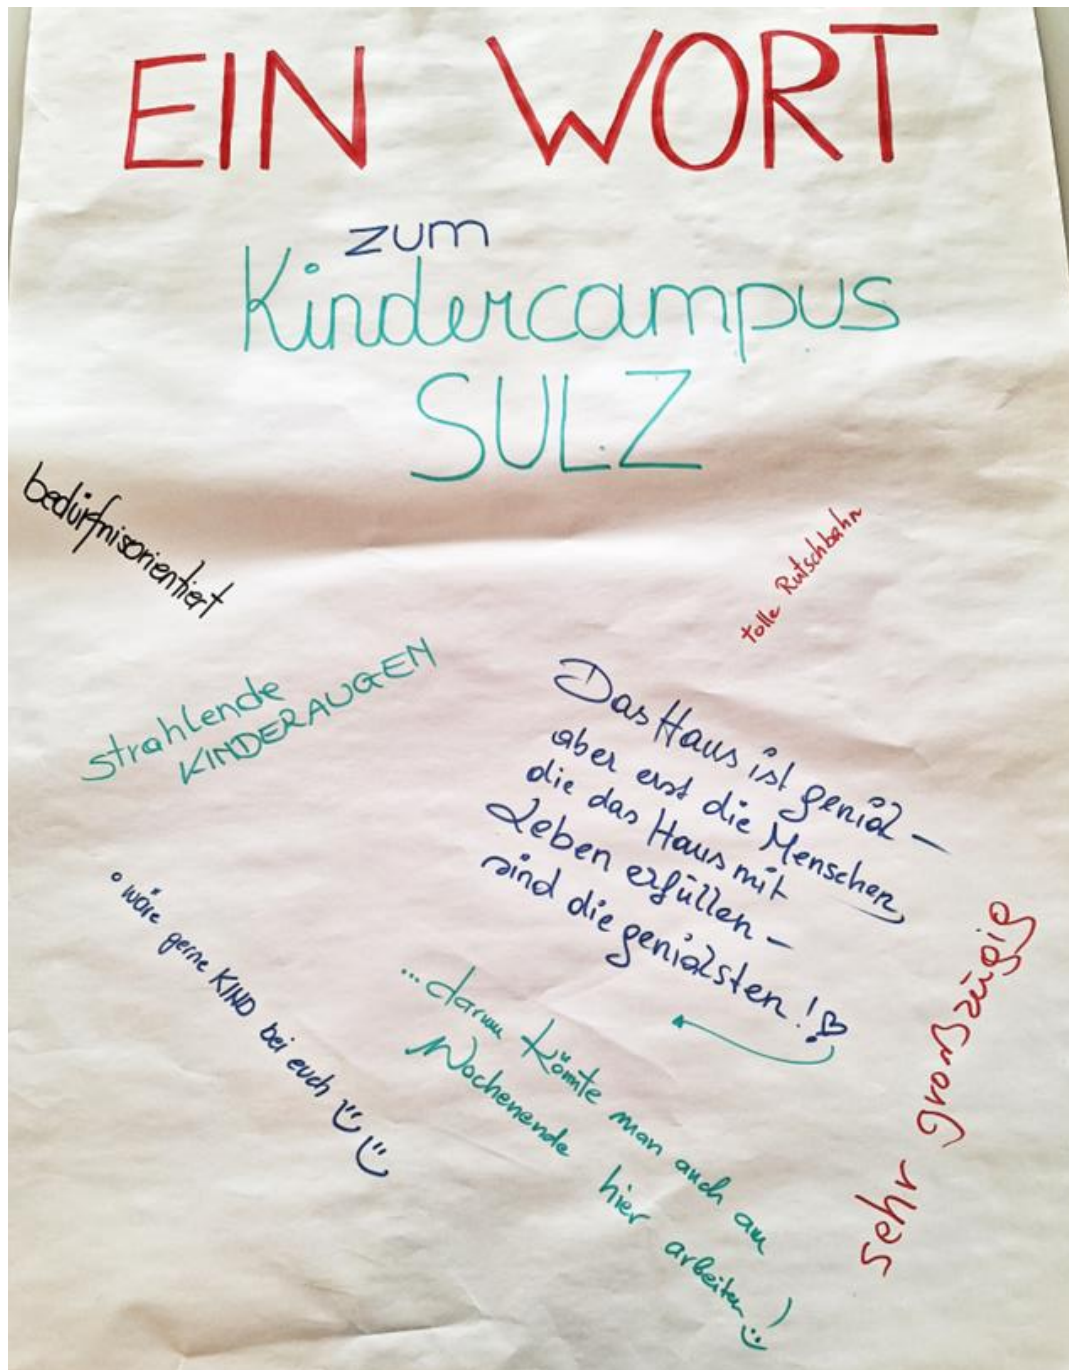 EIN WORT
zum
Kindercampus
SULZ
bedürfnisorientiert
tolle Rutschbahn
strahlende
KINDERAUGEN
Das Haus ist genial –
aber erst die Menschen,
die das Haus mit
Leben erfüllen –
sind die genialsten!
• wäre gerne KIND bei euch
...darum könnte man auch am
Wochenende hier arbeiten!
sehr großzügig